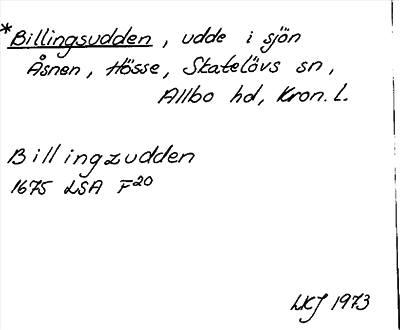 *Billingsudden, udde i sjön
Åsnen, Hösse, Skatelövs sn,
Allbo hd, Kron. l.
Billingzudden
1675 LSA F20
LKJ 1973